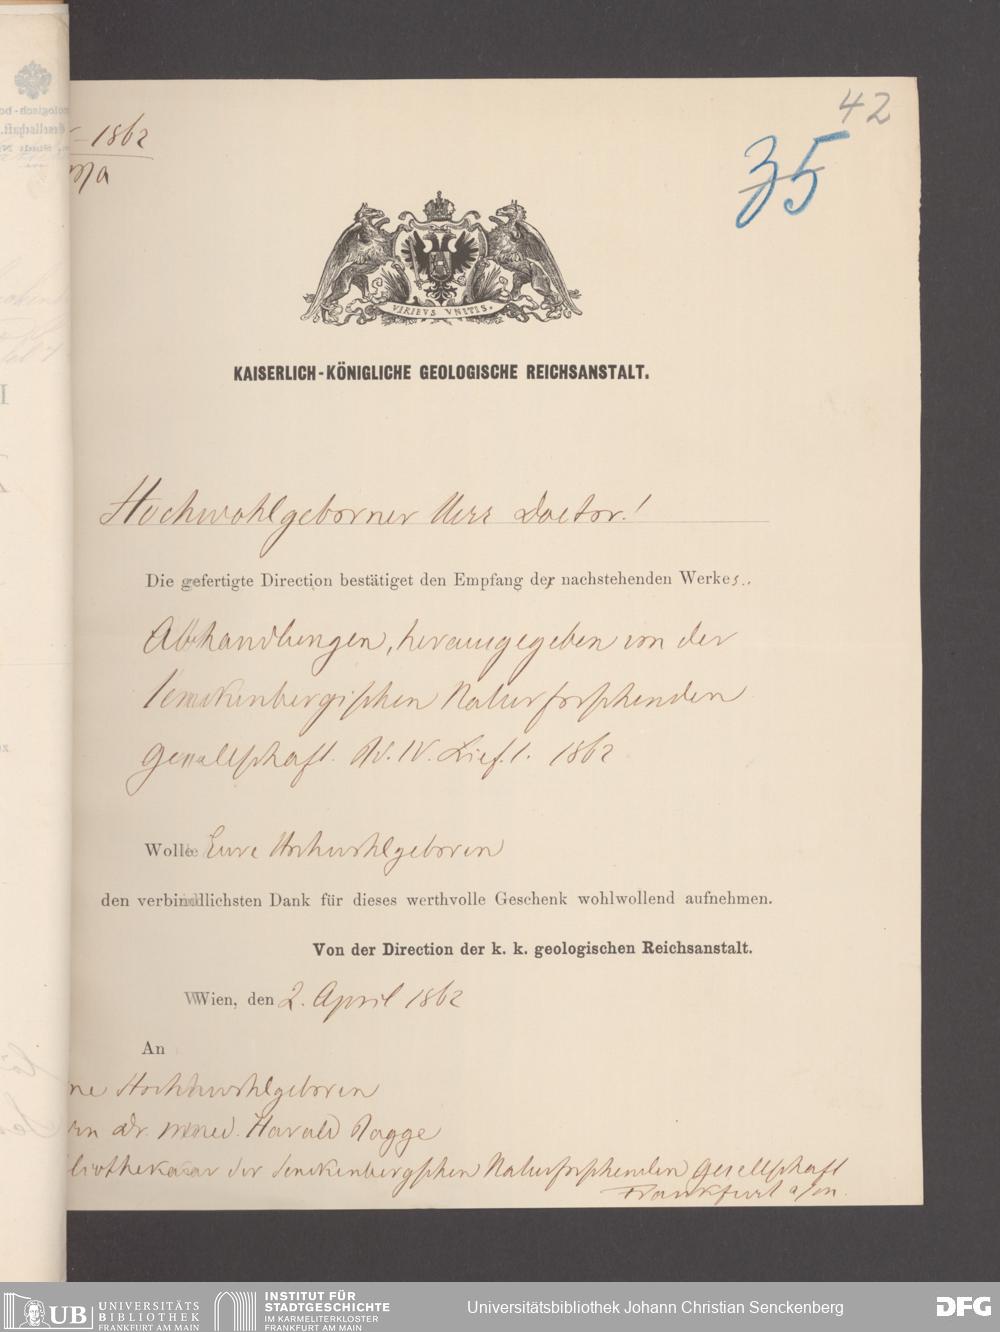 42
35
– 1862
VIRIBVS VNITIS.
KAISERLICH-KÖNIGLICHE GEOLOGISCHE REICHSANSTALT.
Hochwohlgeborner Herr Doctor!
Die gefertigte Direction bestätiget den Empfang der nachstehenden Werkes..
Abhandlungen, herausgegeben von der
Senckenbergischen Naturforschenden
Gesellschaft. Bd. IV. Lief. 1. 1862
Wolle Eure Hochwohlgeboren
den verbindlichsten Dank für dieses werthvolle Geschenk wohlwollend aufnehmen.
Von der Direction der k. k. geologischen Reichsanstalt.
Wien, den 2. April 1862
An
ne Hochwohlgeboren
rn Dr. med. Harald Bagge
liothekar der Senckenbergschen Naturforschenden Gesellschaft
Frankfurt a/m.
UB UNIVERSITÄTS
BIBLIOTHEK
FRANKFURT AM MAIN
INSTITUT FÜR
STADTGESCHICHTE
IM KARMELITERKLOSTER
FRANKFURT AM MAIN
Universitätsbibliothek Johann Christian Senckenberg
DFG